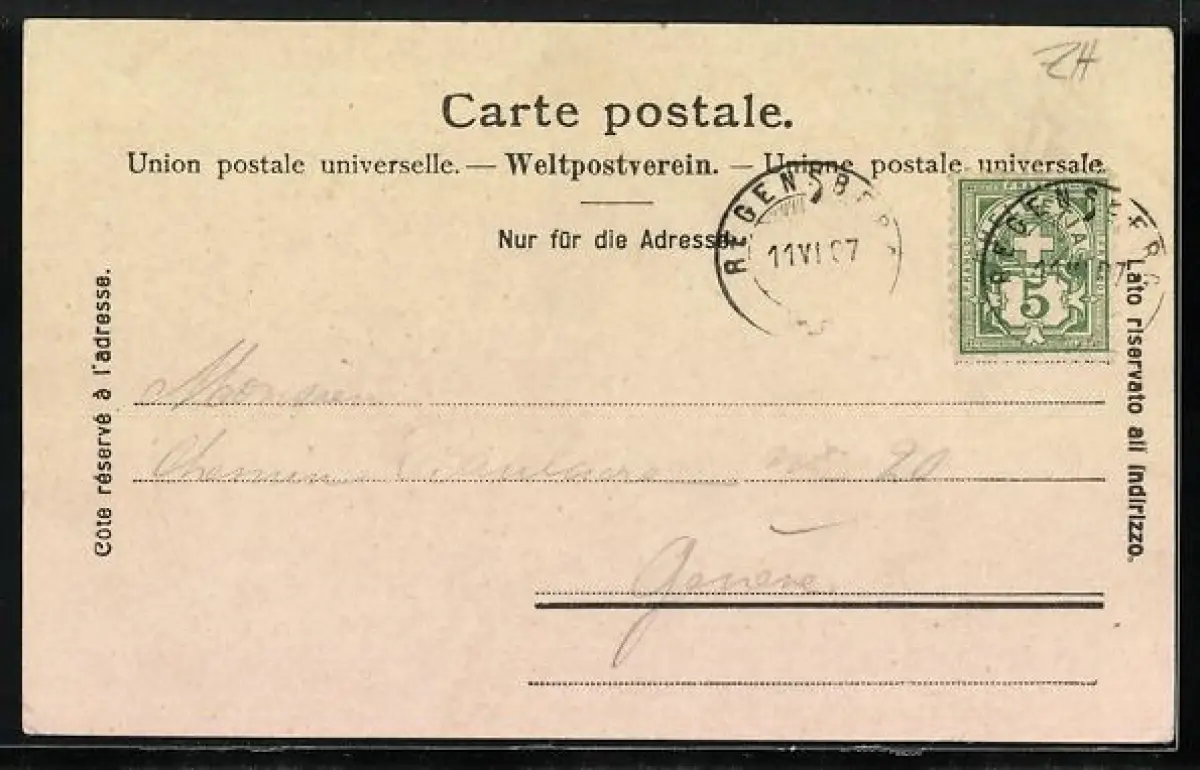 ZH
Carte postale.
Union postale universelle. — Weltpostverein. — Unione postale universale
Nur für die Adresse.
REGENSBERG
11 VI 07
REGENSBERG
11 VI 07
5
Côté réservé à l'adresse.
Lato riservato all indirizzo.
Monsieur
Chemin 20
Genève